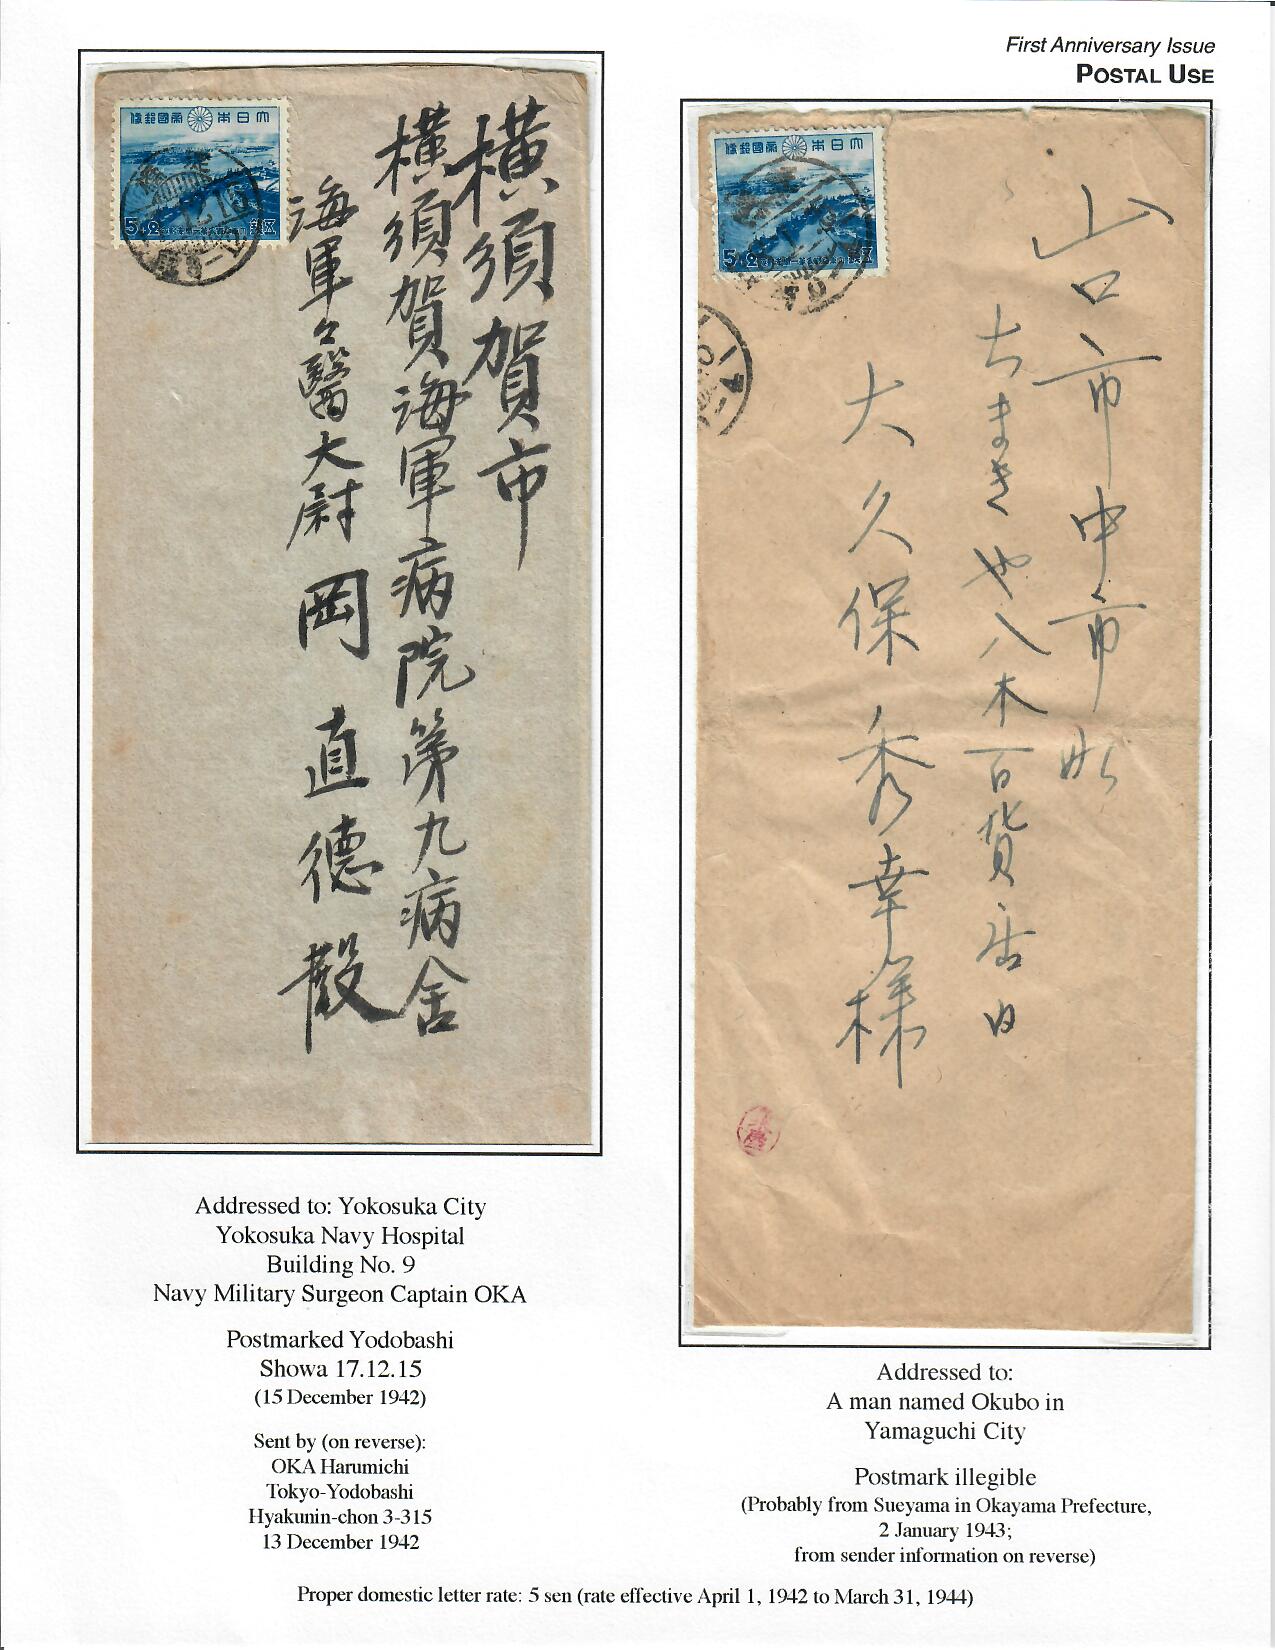 First Anniversary Issue
POSTAL USE
大日本帝國郵便
5+2
横須賀市
横須賀海軍病院第九病舎
海軍々醫大尉 岡 直德 殿
大日本帝國郵便
5+2
山口市中市町
ちまきや八木百貨店内
大久保秀幸様
Addressed to: Yokosuka City
Yokosuka Navy Hospital
Building No. 9
Navy Military Surgeon Captain OKA
Postmarked Yodobashi
Showa 17.12.15
(15 December 1942)
Sent by (on reverse):
OKA Harumichi
Tokyo-Yodobashi
Hyakunin-chon 3-315
13 December 1942
Addressed to:
A man named Okubo in
Yamaguchi City
Postmark illegible
(Probably from Sueyama in Okayama Prefecture,
2 January 1943;
from sender information on reverse)
Proper domestic letter rate: 5 sen (rate effective April 1, 1942 to March 31, 1944)